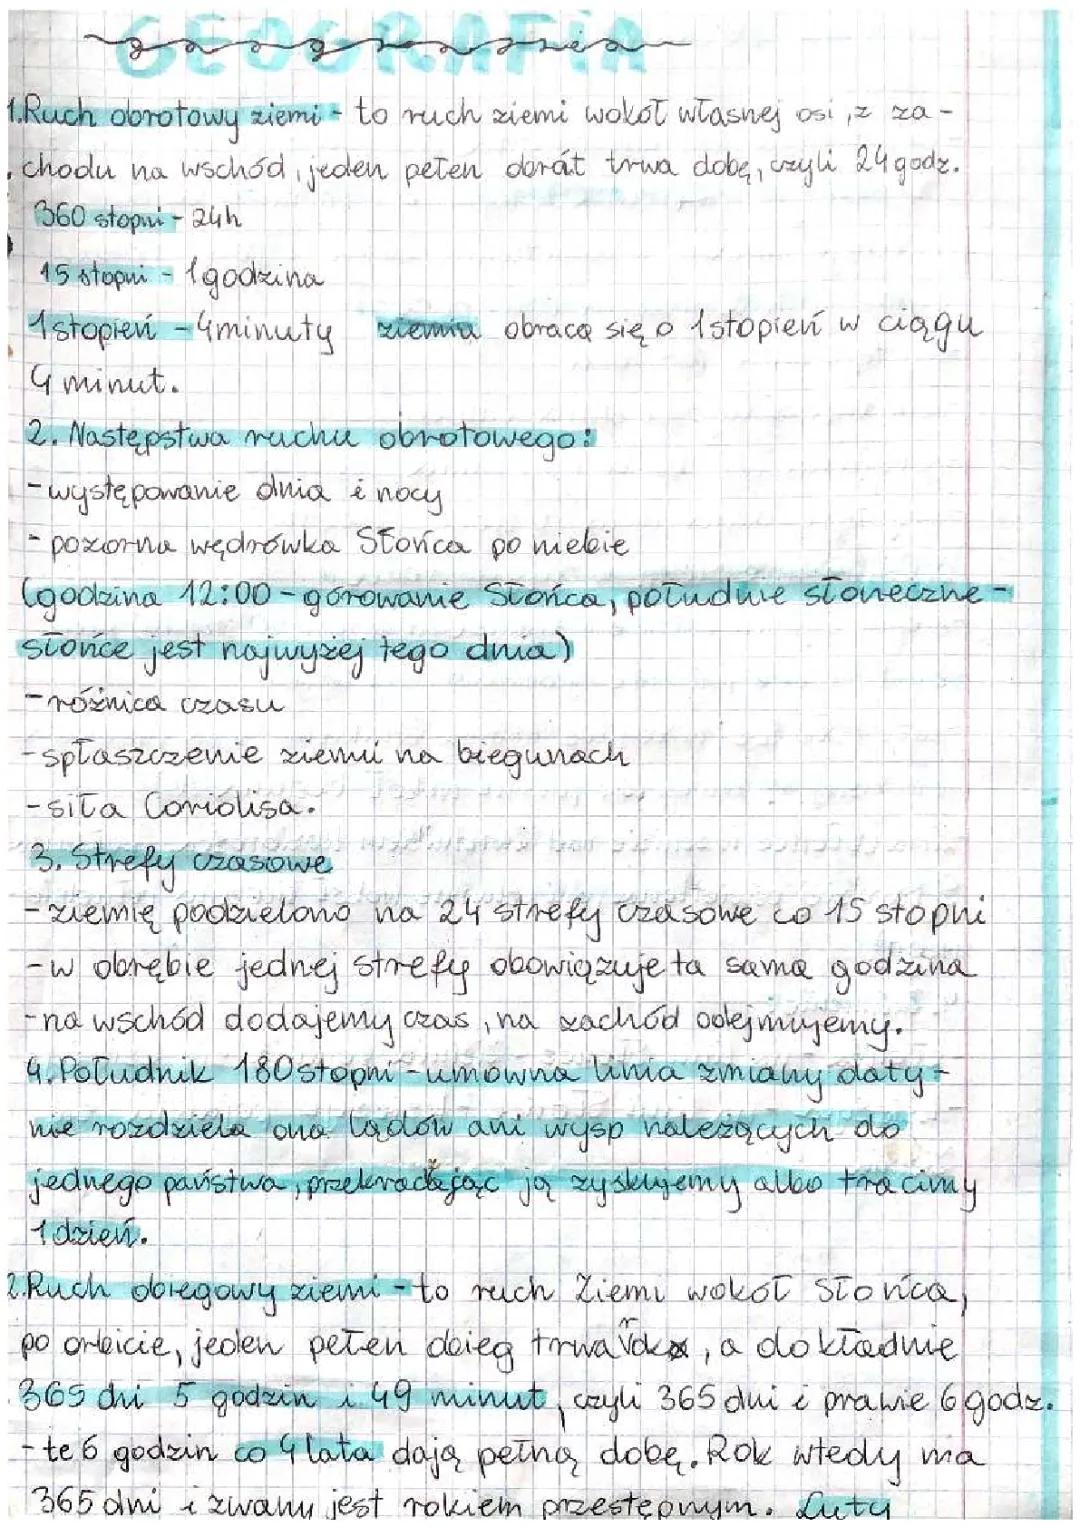 GEOGRAFIA
geografia
1.Ruch obrotowy ziemi - to ruch ziemi wokół własnej osi, z za-
chodu na wschód, jeden pełen obrót trwa dobę, czyli 24godz.
360 stopni - 24h
15 stopni - 1godzina
1stopień - 4minuty ziemia obraca się o 1stopień w ciągu
4 minut.
2. Następstwa ruchu obrotowego:
- występowanie dnia i nocy
- pozorna wędrówka Słońca po niebie
(godzina 12:00 - górowanie Słońca, południe słoneczne -
słońce jest najwyżej tego dnia)
- różnica czasu
- spłaszczenie ziemi na biegunach
- siła Coriolisa.
3. Strefy czasowe
- ziemię podzielono na 24 strefy czasowe co 15 stopni
- w obrębie jednej strefy obowiązuje ta sama godzina
- na wschód dodajemy czas, na zachód odejmujemy.
4. Południk 180stopni - umowna linia zmiany daty -
nie rozdziela ona lądów ani wysp należących do
jednego państwa, przekraczając ją zyskujemy albo tracimy
1 dzień.
2.Ruch obiegowy ziemi - to ruch Ziemi wokół Słońca,
po orbicie, jeden pełen obieg trwa rok, a dokładnie
365 dni 5 godzin i 49 minut, czyli 365 dni i prawie 6godz.
- te 6 godzin co 4 lata dają pełną dobę. Rok wtedy ma
365 dni i zwany jest rokiem przestępnym. Luty